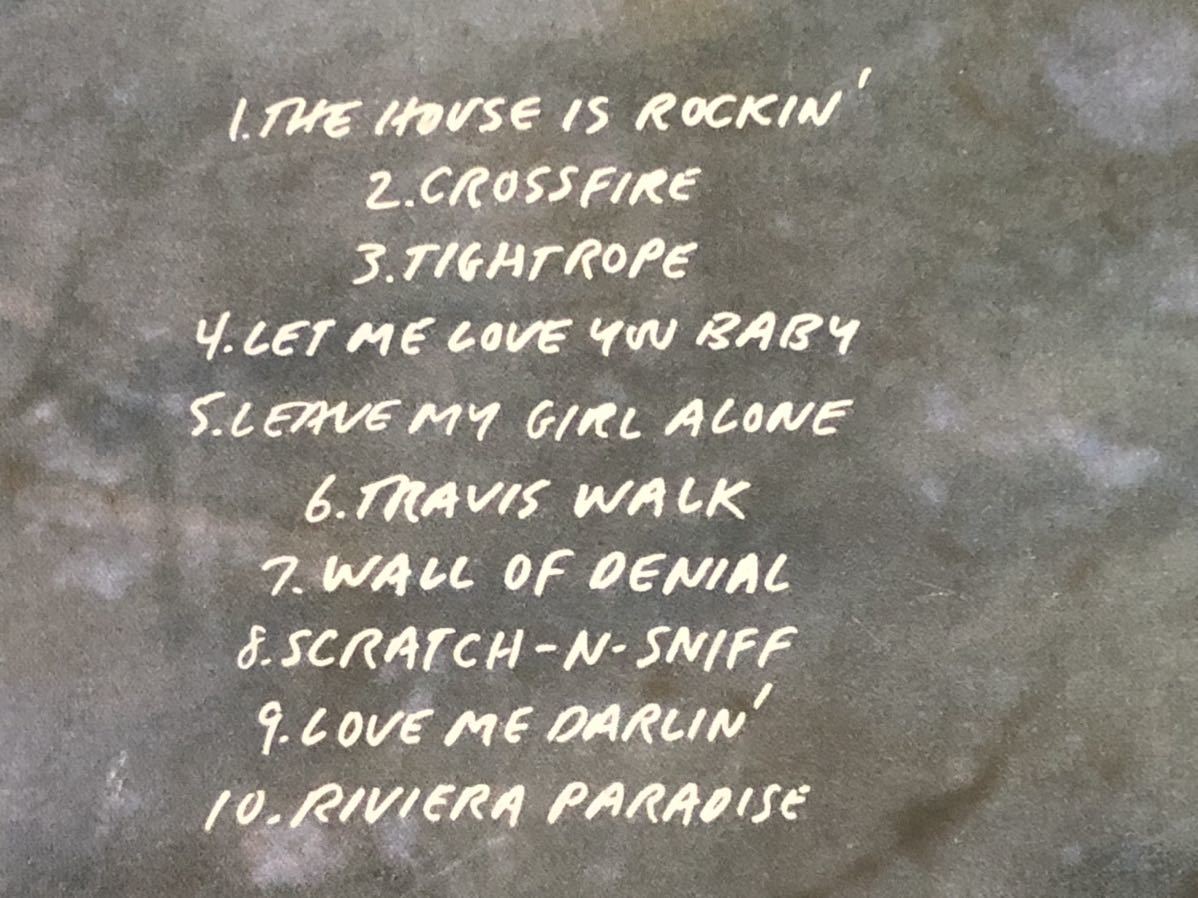 1. THE HOUSE IS ROCKIN'
2. CROSSFIRE
3. TIGHTROPE
4. LET ME LOVE YOU BABY
5. LEAVE MY GIRL ALONE
6. TRAVIS WALK
7. WALL OF DENIAL
8. SCRATCH-N-SNIFF
9. LOVE ME DARLIN'
10. RIVIERA PARADISE